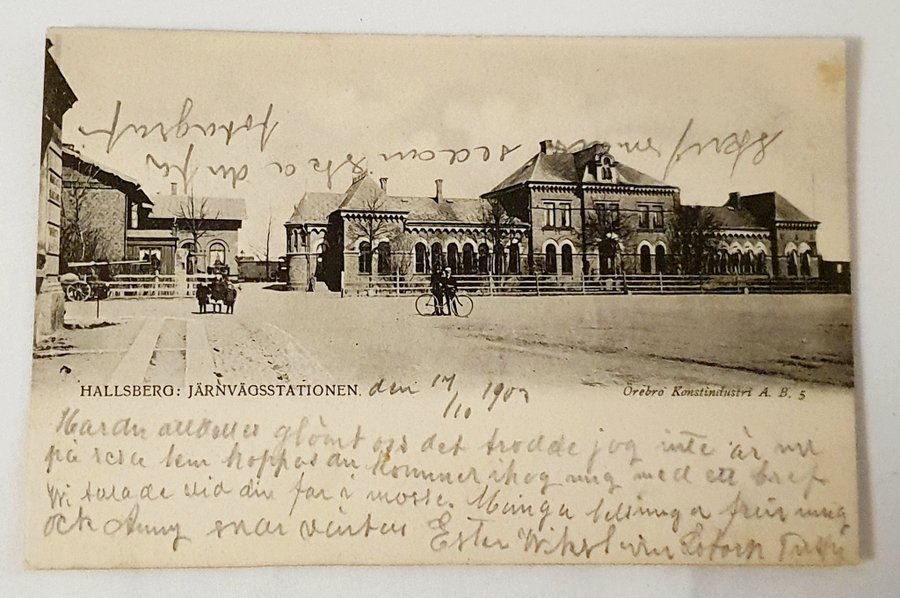 skrif snart sedan ska du få
fotografi
HALLSBERG: JÄRNVÄGSSTATIONEN. den 17/10 1903
Örebro Konstindustri A. B. 5
Har du alldeles glömt oss det trodde jag inte är nu
på resa hem hoppas du kommer ihog mig med ett bref
Vi talade vid din far i mosse. Många helsningar från mig
ock Anny svar väntas Ester